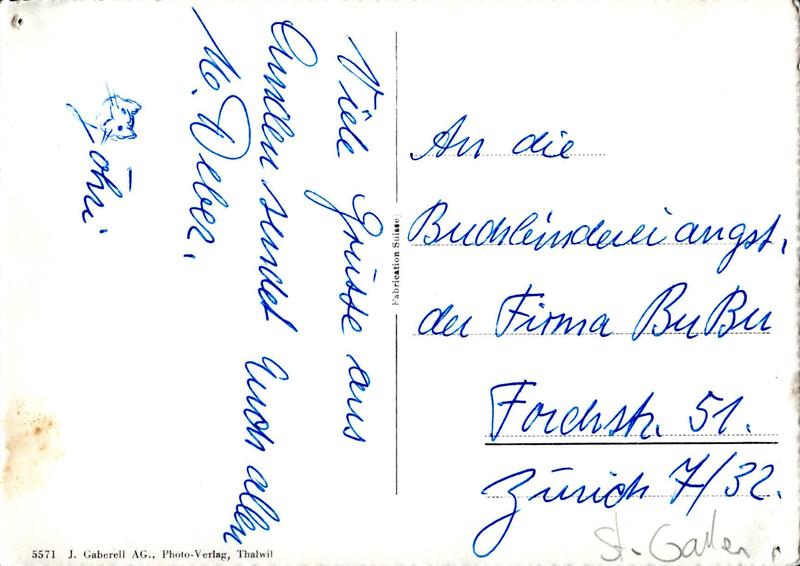 Viele Grüsse aus
Amden sendet Euch allen
M. Weber.
Töni
Fabrication Suisse
An die
Buchbindereiangst.
der Firma BuBu
Forchstr. 51.
Zürich 7/32.
St. Gallen
5571 J. Gaberell AG., Photo-Verlag, Thalwil